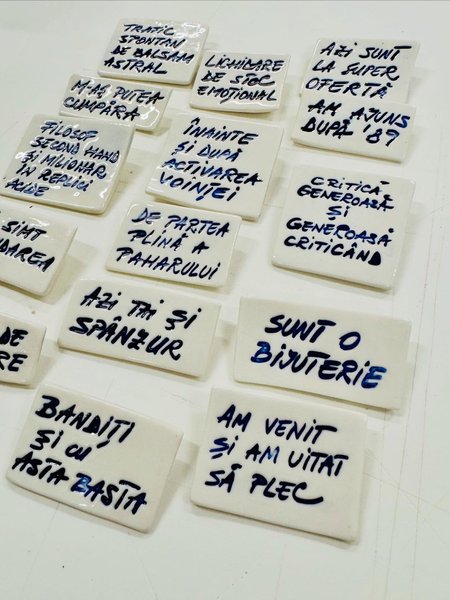 TRAFIC
SPONTAN
DE BALSAM
ASTRAL
LICHIDARE
DE STOC
EMOȚIONAL
AZI SUNT
LA SUPER
OFERTĂ
M-AȘ PUTEA
CUMPĂRA
AM AJUNS
DUPĂ '89
FILOSOF
SECOND HAND
ȘI MILIONAR
ÎN REPLICI
ACIDE
ÎNAINTE
ȘI DUPĂ
ACTIVAREA
VOINȚEI
CRITICĂ
GENEROASĂ
ȘI
GENEROASĂ
CRITICÂND
SIMT
DE PARTEA
PLINĂ A
PAHARULUI
AZI TAI ȘI
SPÂNZUR
SUNT O
BIJUTERIE
DE
RE
BANDIȚI
ȘI CU
ASTA BASTA
AM VENIT
ȘI AM UITAT
SĂ PLEC